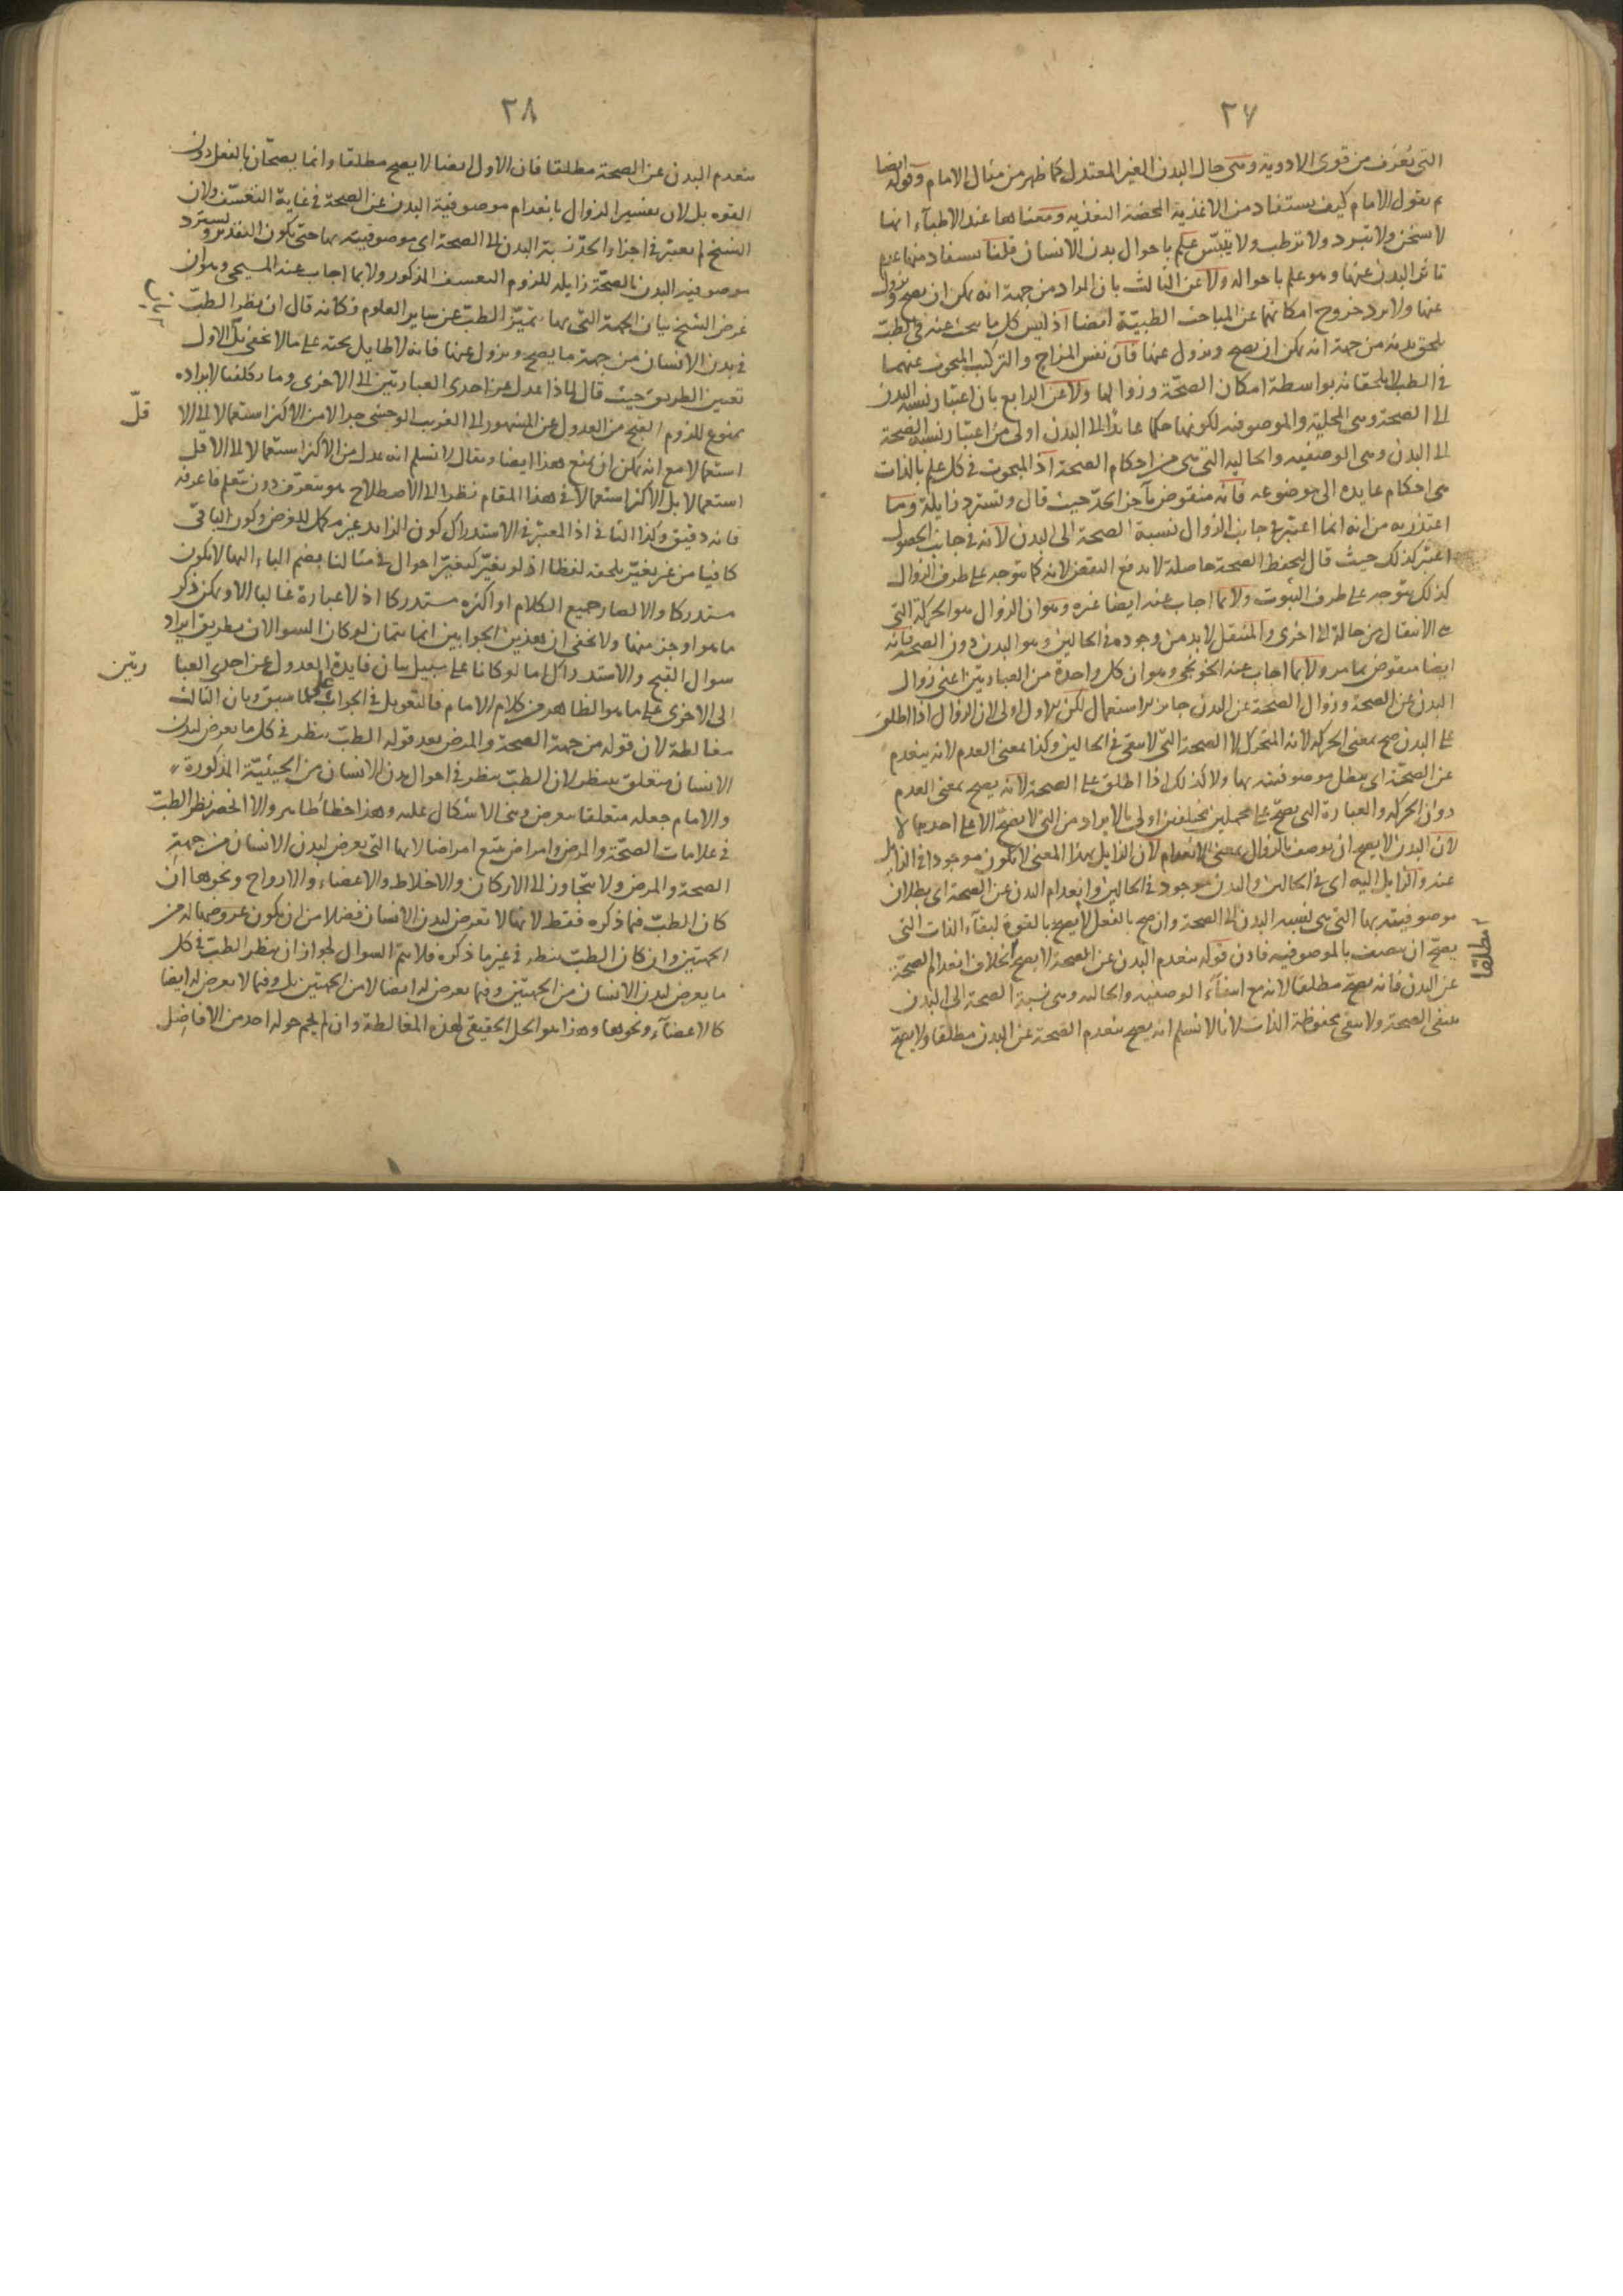 ٢٧
التى تُعرَف من قوى الادوية وهى حال البدن الغير المعتدل كما ظهر من مثال الامام وقوله ايضا
لم يقول الامام كيف يستفاد من الاغذية المحضة التغذيه ومعناها عند الاطباء انها
لا تسخن ولا تبرد ولا ترطب ولا تيبّس علم باحوال بدن الانسان قلنا يستفاد منها عدم
تاثر البدن عنها وهو علم باحواله ولا عن الثالث بان المراد من جهة انه يمكن ان يصح ويزول
عنها ولا يرد خروج امكانهما عن المباحث الطبيّة ايضا اذ ليس كل ما يبحث عنه فى الطب
يلحق بدنه من جهة انه يمكن ان يصح ويزول عنها فان نفس المزاج والتركيب المبحوث عنهما
فى الطب لا يلحقانه بواسطة امكان الصحّة وزوالها ولا عن الرابع بان اعتبار نسبة البدن
الى الصحة وهى المحلية والموصوفيه لكونها حكما عايدا الى البدن اولى من اعتبار نسبة الصحة
الى البدن وهى الوصفيه والحاليه التى هى من احكام الصحة اذ المبحوث فى كل علم بالذات
هى احكام عايده الى موضوعه فانه منقوض بآخر الحدّ حيث قال وتسترد زايلة وما
اعتذر به من انه انما اعتبر فى جانب الزوال نسبة الصحة الى البدن لانه فى جانب الحصول
اعتبر كذلك حيث قال ليحفظ الصحة حاصلة لا يدفع النقض لانه كما يتوجه على طرف الزوال
كذلك يتوجه على طرف الثبوت ولا بما اجاب عنه ايضا غيره وهو ان الزوال هو الحركة التى
هى الانتقال من حالة الى اخرى والمنتقل لابد من وجوده فى الحالين وهو البدن دون الصحة فانه
ايضا منقوض بما مر ولا بما اجاب عنه الخونجى وهو ان كل واحدة من العبارتين اعنى زوال
البدن عن الصحة وزوال الصحة عن البدن جايز الاستعمال لكن الاول اولى لان الزوال اذا اطلق
على البدن صح بمعنى الحركه لانه المتحرك لا الصحة التى لا تبقى فى الحالين وكذا بمعنى العدم لانه ينعدم
عن الصحّة اى يبطل موصوفيته بها ولا كذلك اذا اطلق على الصحة لانه يصح بمعنى العدم
دون الحركه والعبارة التى يصحّ على محملين مختلفين اولى بالايراد من التى لا يصحّ الا على احدهما لا
لان البدن لا يصح ان يوصف بالزوال بمعنى الانعدام لان الزايل بهذا المعنى لا يكون موجودا فى الزايل
عنه والزايل اليه اى فى الحالين والبدن موجود فى الحالين وانعدام البدن عن الصحة اى بطلان
موصوفيته بها التى هى نسبة البدن الى الصحة وان صح بالفعل لا يصح بالقوة لبقاء الذات التى
يصحّ ان يتصف بالموصوفيه فاذن قوله ينعدم البدن عن الصحة لا يصح بخلاف انعدام الصحة
مطلقا
عن البدن فانه يصحّ مطلقا لانه مع انتفاء الوصفيه والحاليه وهى نسبة الصحة الى البدن
ينفى الصحة ولا يبقى محفوظة الذات لانا لا نسلم انه يصح ينعدم الصحة عن البدن مطلقا ولا يصح
٢٨
ينعدم البدن عن الصحة مطلقا فان الاول ايضا لا يصح مطلقا وانما يصحّان بالفعل دون
القوه بل لان تفسير الزوال بانعدام موصوفية البدن عن الصحة فى غاية التعسّف ولان
الشيخ لم يعتبر فى اجزاء الحدّ نسبة البدن الى الصحة اى موصوفيته بها حتى يكون التقدير ويسترد
موصوفية البدن بالصحّة زايله للزوم التعسف المذكور ولا بما اجاب عنه المسيحى وهو ان
غرض الشيخ بيان الجهة التى بها يتميّز الطب عن ساير العلوم فكانه قال ان نظر الطب
فى بدن الانسان من جهة ما يصح ويزول عنها فانه لا طايل تحته على ما لا يخفى بل الاول
تعيين الطريق حيث قال لماذا عدل عن احدى العبارتين الى الاخرى وما ركلفنا لايراده
ممنوع للزوم القبح من العدول عن المشهور الى الغريب الوحشى جدا لا من الاكثر استعمالا الى الا
قلّ
استعمالا مع انه يمكن ان يمنع هذا ايضا ويقال لا نسلم انه عدل من الاكثر استعمالا الى الاقل
استعمالا بل الاكثر استعمالا فى هذا المقام نظرا الى الاصطلاح هو يتعرف دون يتعلم فاعرفه
فانه دقيق وكذا الثانى اذ المعتبر فى الاستدراك كون الزايد غير مكمل للغرض وكون الباقى
كافيا من غير تغيّر يلحقه لفظا اذ لو بغيّر كيغيّر احوال فى مثالنا بضم الباء اليها لا يكون
مستدركا والا لصار جميع الكلام او اكثره مستدركا اذ لا عبارة غالبا الا ويمكن ذكر
ما هو اوجز منها ولا يخفى ان هذين الجوابين انما يتمان لو كان السوالان بطريق ايراد
سوال القبح والاستدراك اما لو كانا على سبيل بيان فايدة العدول عن احدى العبا
رتين
الى الاخرى على ما هو الظاهر من كلام الامام فالتعويل فى الجواب على ما سبق وبان الثالث
مغالطة لان قوله من جهة الصحة والمرض بعد قوله الطب ينظر فى كل ما يعرض لبدن
الانسان متعلق بينظر لان الطبّ ينظر فى احوال بدن الانسان من الحيثيّة المذكورة
والامام جعله متعلقا بيعرض وبنى الاشكال عليه وهذا خطأ ظاهر والا انحصر نظر الطبّ
فى علامات الصحّة والمرض وامراض تتبع امراضا لانها التى يعرض لبدن الانسان من جهة
الصحة والمرض ولا يتجاوز الى الاركان والاخلاط والاعضاء والارواح ونحوها ان
كان الطبّ فيما ذكره فقط لانها لا تعرض لبدن الانسان فضلا من ان يكون عروضها له من
الجهتين وان كان الطبّ ينظر فى غير ما ذكره فلا يتم السوال لجواز ان ينظر الطب فى كل
ما يعرض لبدن الانسان من الجهتين وفيما يعرض له ايضا لا من الجهتين بل وفيما لا يعرض له ايضا
كالاعضاء ونحوها وهذا هو الحل الحقيقى لهذه المغالطة وان لم يحم حوله احد من الافاضل